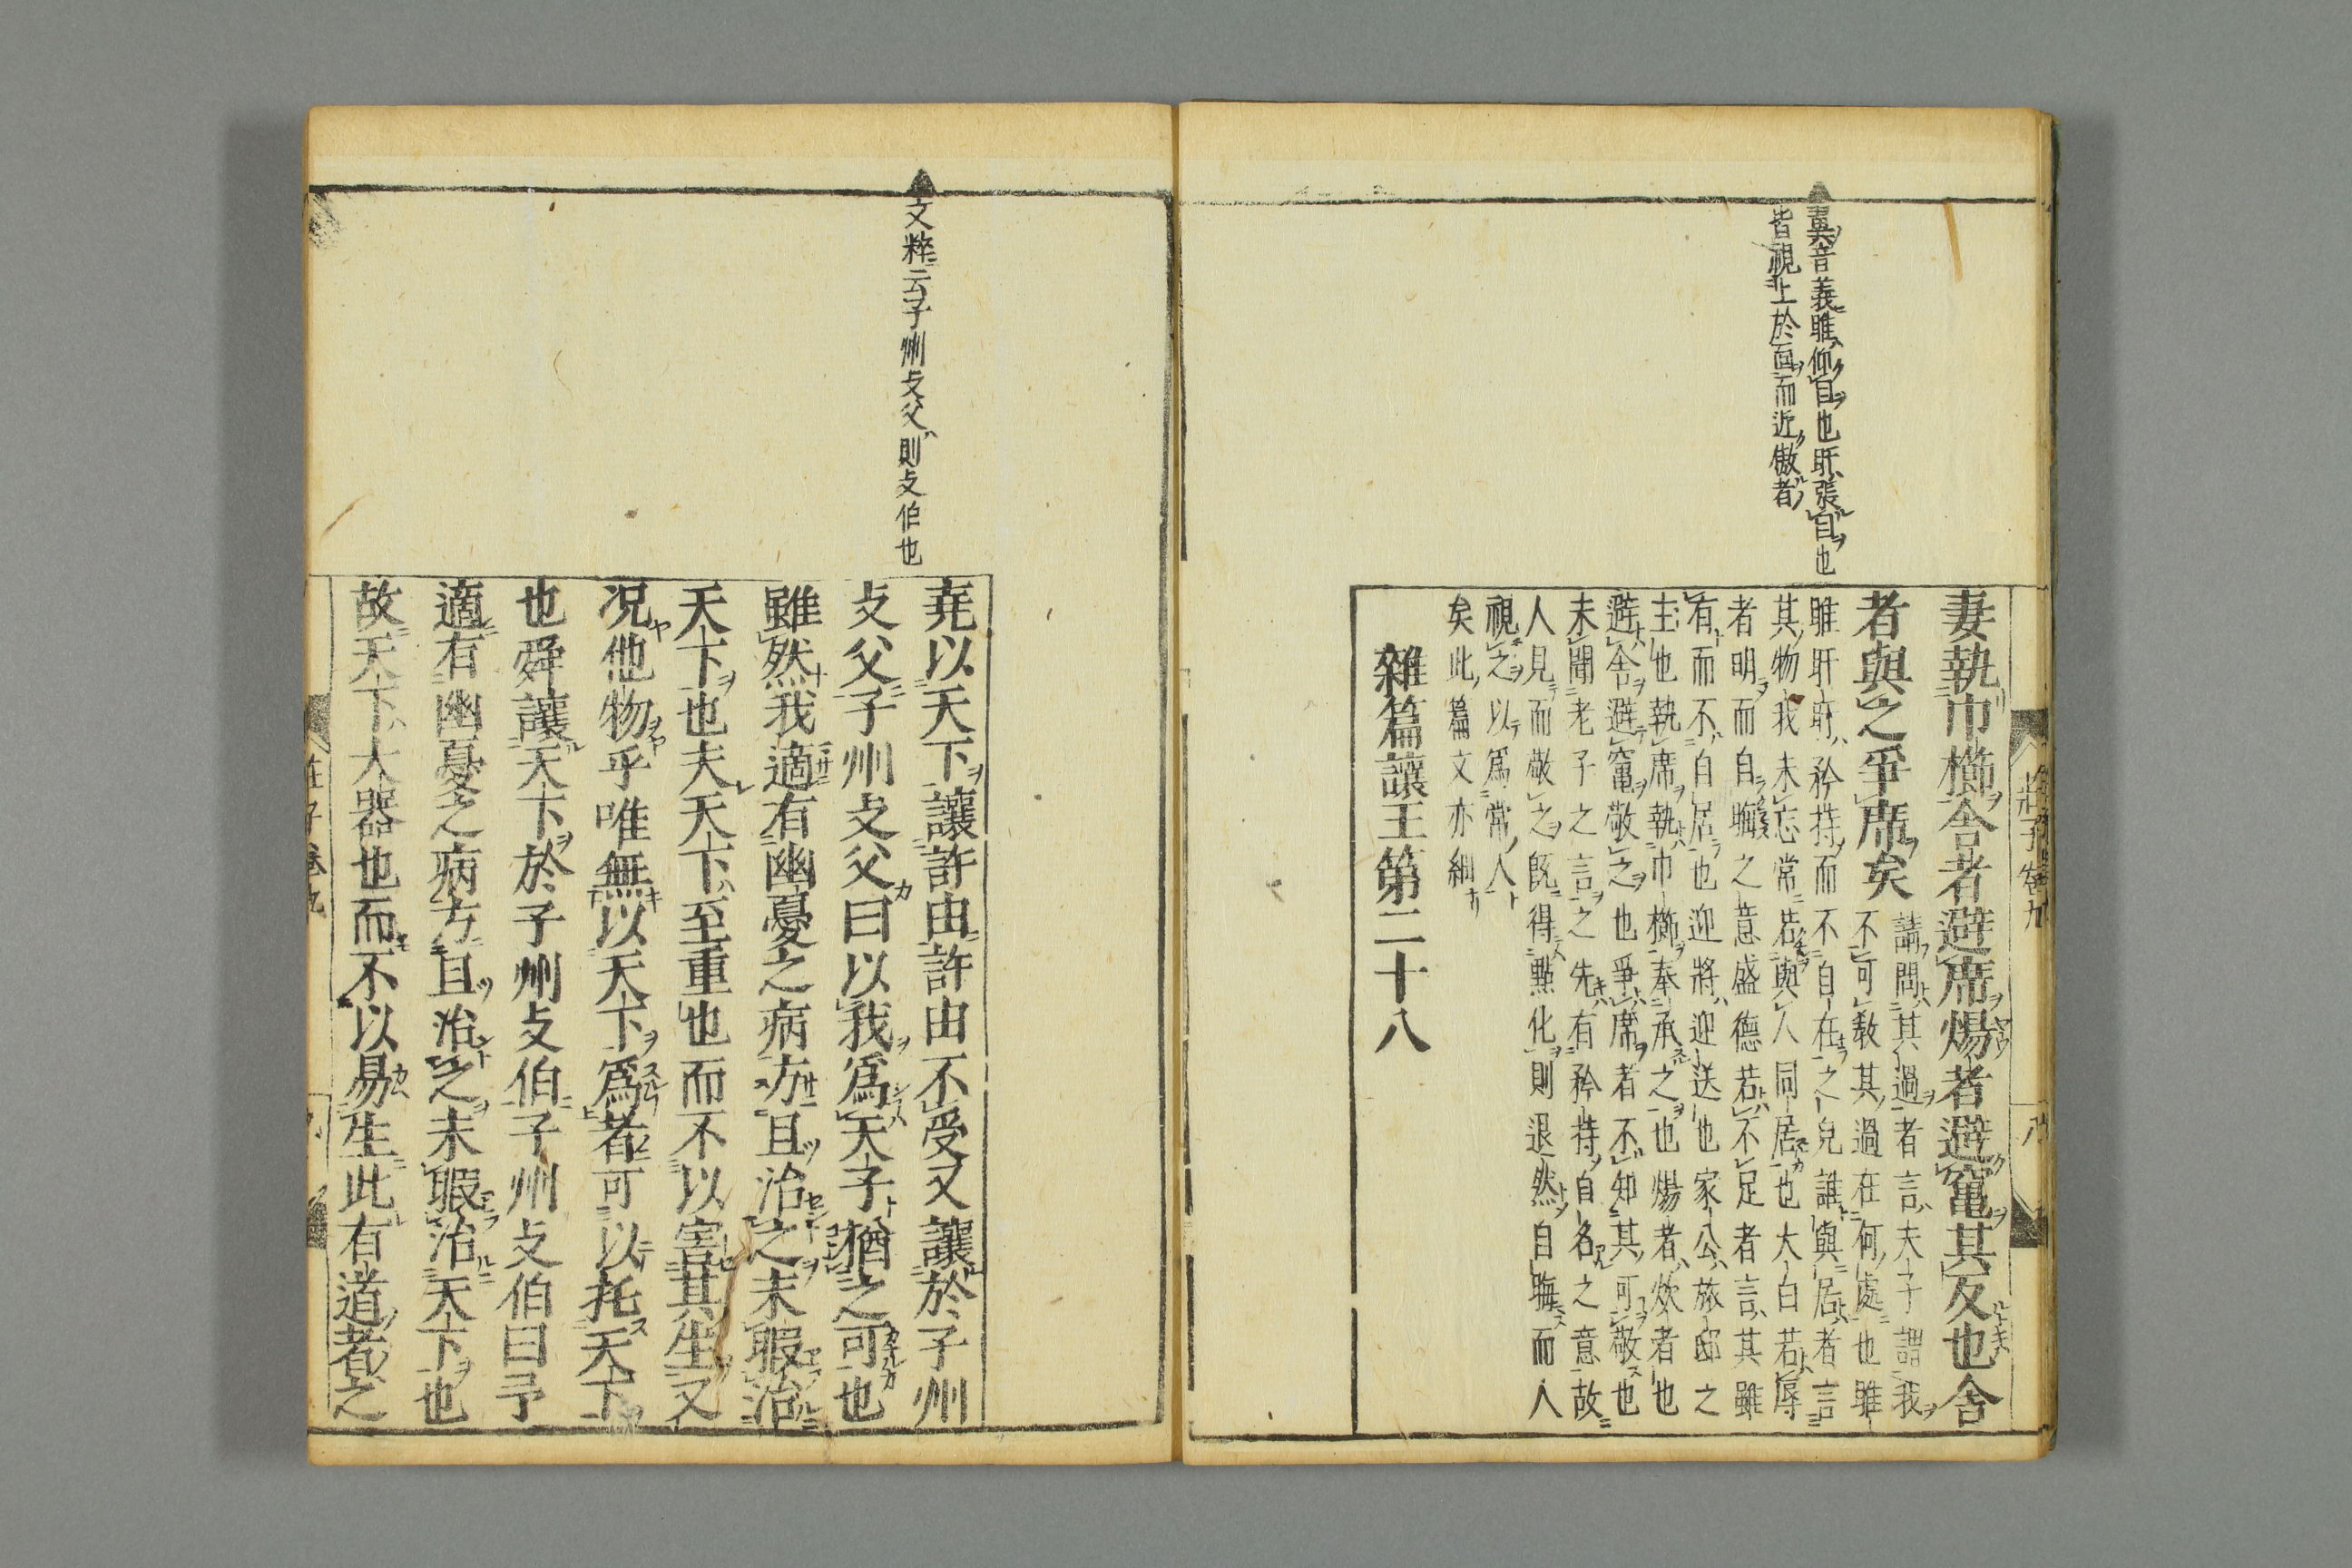 翼音義睢仰目也盱張目也
皆視上於面而近傲者
妻執巾櫛舍者避席煬者避竈其反也舍
者與之爭席矣
請問其過者言夫子謂我
不可敎其過在何處也睢
睢盱盱矜持而不自在之皃誰與居者言
其物我未忘常若與人同居也大白若辱
者明而自晦之意盛德若不足者言其雖
有而不自居也迎將迎送也家公旅邸之
主也執席執巾櫛奉承之也煬者炊者也
避舍避竈敬之也爭席者不知其可敬也
未聞老子之言之先有矜持自名之意故
人見而敬之旣得點化則退然自晦而人
視之以爲常人
矣此篇文亦細
雜篇讓王第二十八
莊子卷九
八
文粹云子州支父則支伯也
堯以天下讓許由許由不受又讓於子州
支父子州支父曰以我爲天子猶之可也
雖然我適有幽憂之病方且治之未暇治
天下也夫天下至重也而不以害其生又
况他物乎唯無以天下爲者可以托天下
也舜讓天下於子州支伯子州支伯曰予
適有幽憂之病方且治之未暇治天下也
故天下大器也而不以易生此有道者之
莊子卷九